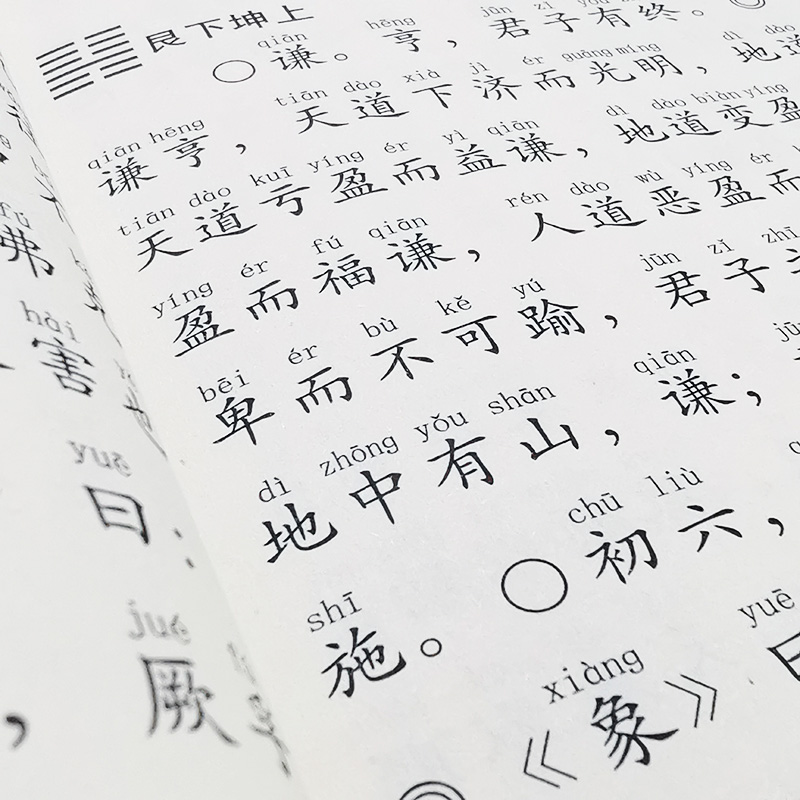 艮下坤上
qiān hēng jūn zǐ yǒu zhōng
谦。亨，君子有终。
qiān hēng tiān dào xià jì ér guāng míng dì dào
谦亨，天道下济而光明，地道
tiān dào kuī yíng ér yì qiān dì dào biàn yíng
天道亏盈而益谦，地道变盈
yíng ér fú qiān rén dào wù yíng ér
盈而福谦，人道恶盈而
bēi ér bù kě yú jūn zǐ zhī
卑而不可踰，君子之
dì zhōng yǒu shān qiān
地中有山，谦；
shī chū liù
施。初六，
xiàng yuē
《象》曰
fú
弗
hài
害
yuē
曰：
jué
厥